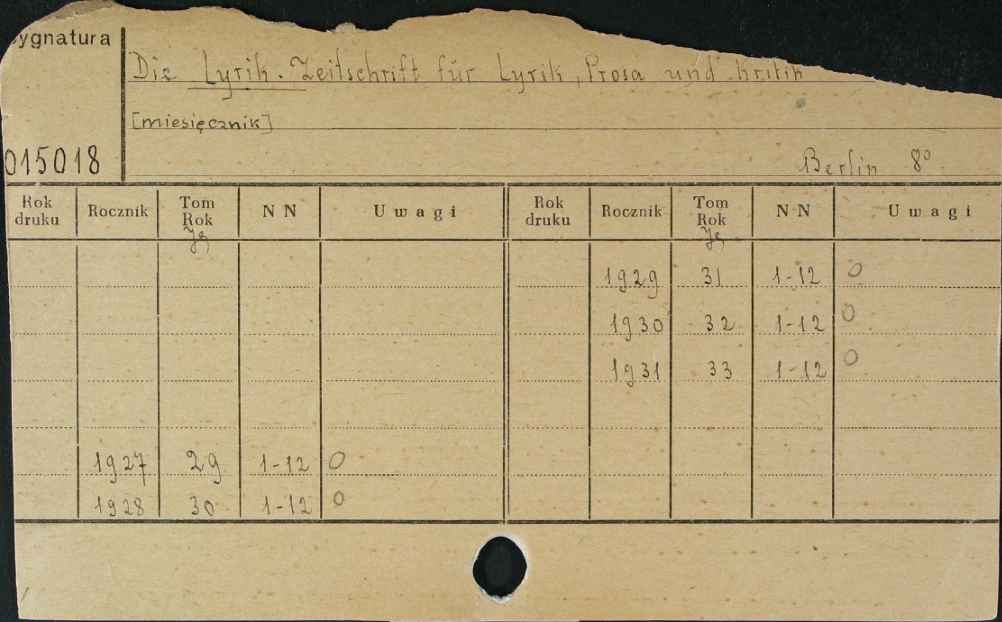 ygnatura
Die Lyrik. Zeitschrift für Lyrik, Prosa und Kritik
[miesięcznik]
015018
Berlin 8°
Rok druku Rocznik Tom Rok Jg NN Uwagi Rok druku Rocznik Tom Rok Jg NN Uwagi
1929 31 1-12 O
1930 32 1-12 O
1931 33 1-12 O
1927 29 1-12 O
1928 30 1-12 O